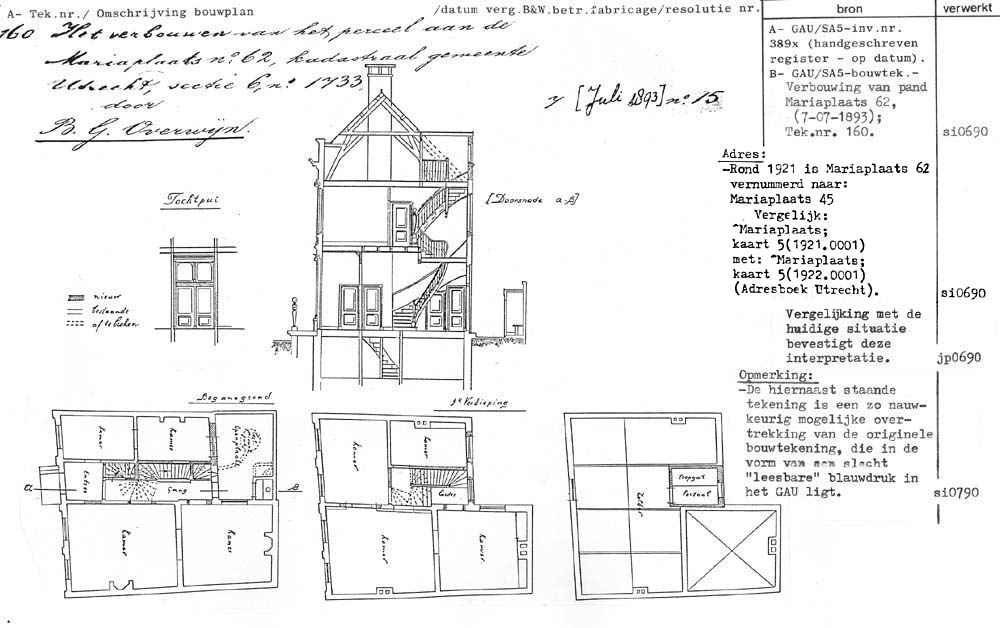 A- Tek.nr./ Omschrijving bouwplan
/datum verg.B&W.betr.fabricage/resolutie nr.
bron
verwerkt
160 Het verbouwen van het perceel aan de
Mariaplaats nº 62, kadastraal gemeente
Utrecht, sectie C, nº 1733.
door
B. G. Overwijn.
7 [Juli 1893] nº 15
A- GAU/SA5-inv.nr.
389x (handgeschreven
register - op datum).
B- GAU/SA5-bouwtek.-
Verbouwing van pand
Mariaplaats 62,
(7-07-1893);
Tek.nr. 160.
si0690
Adres:
-Rond 1921 is Mariaplaats 62
vernummerd naar:
Mariaplaats 45
Vergelijk:
"Mariaplaats;
kaart 5(1921.0001)
met: "Mariaplaats;
kaart 5(1922.0001)
(Adresboek Utrecht).
si0690
Vergelijking met de
huidige situatie
bevestigt deze
interpretatie.
jp0690
Opmerking:
-De hiernaast staande
tekening is een zo nauw-
keurig mogelijke over-
trekking van de originele
bouwtekening, die in de
vorm van een slecht
"leesbare" blauwdruk in
het GAU ligt.
si0790
Tochtpui
[Doorsnede a-B]
nieuw
bestaande
af te breken
Beganegrond
1e Verdieping
kamer
kamer
Entree
Gang
a
B
kamer
kamer
kamer
kamer
kamer
kamer
Zolder
Trapgat
Portaal